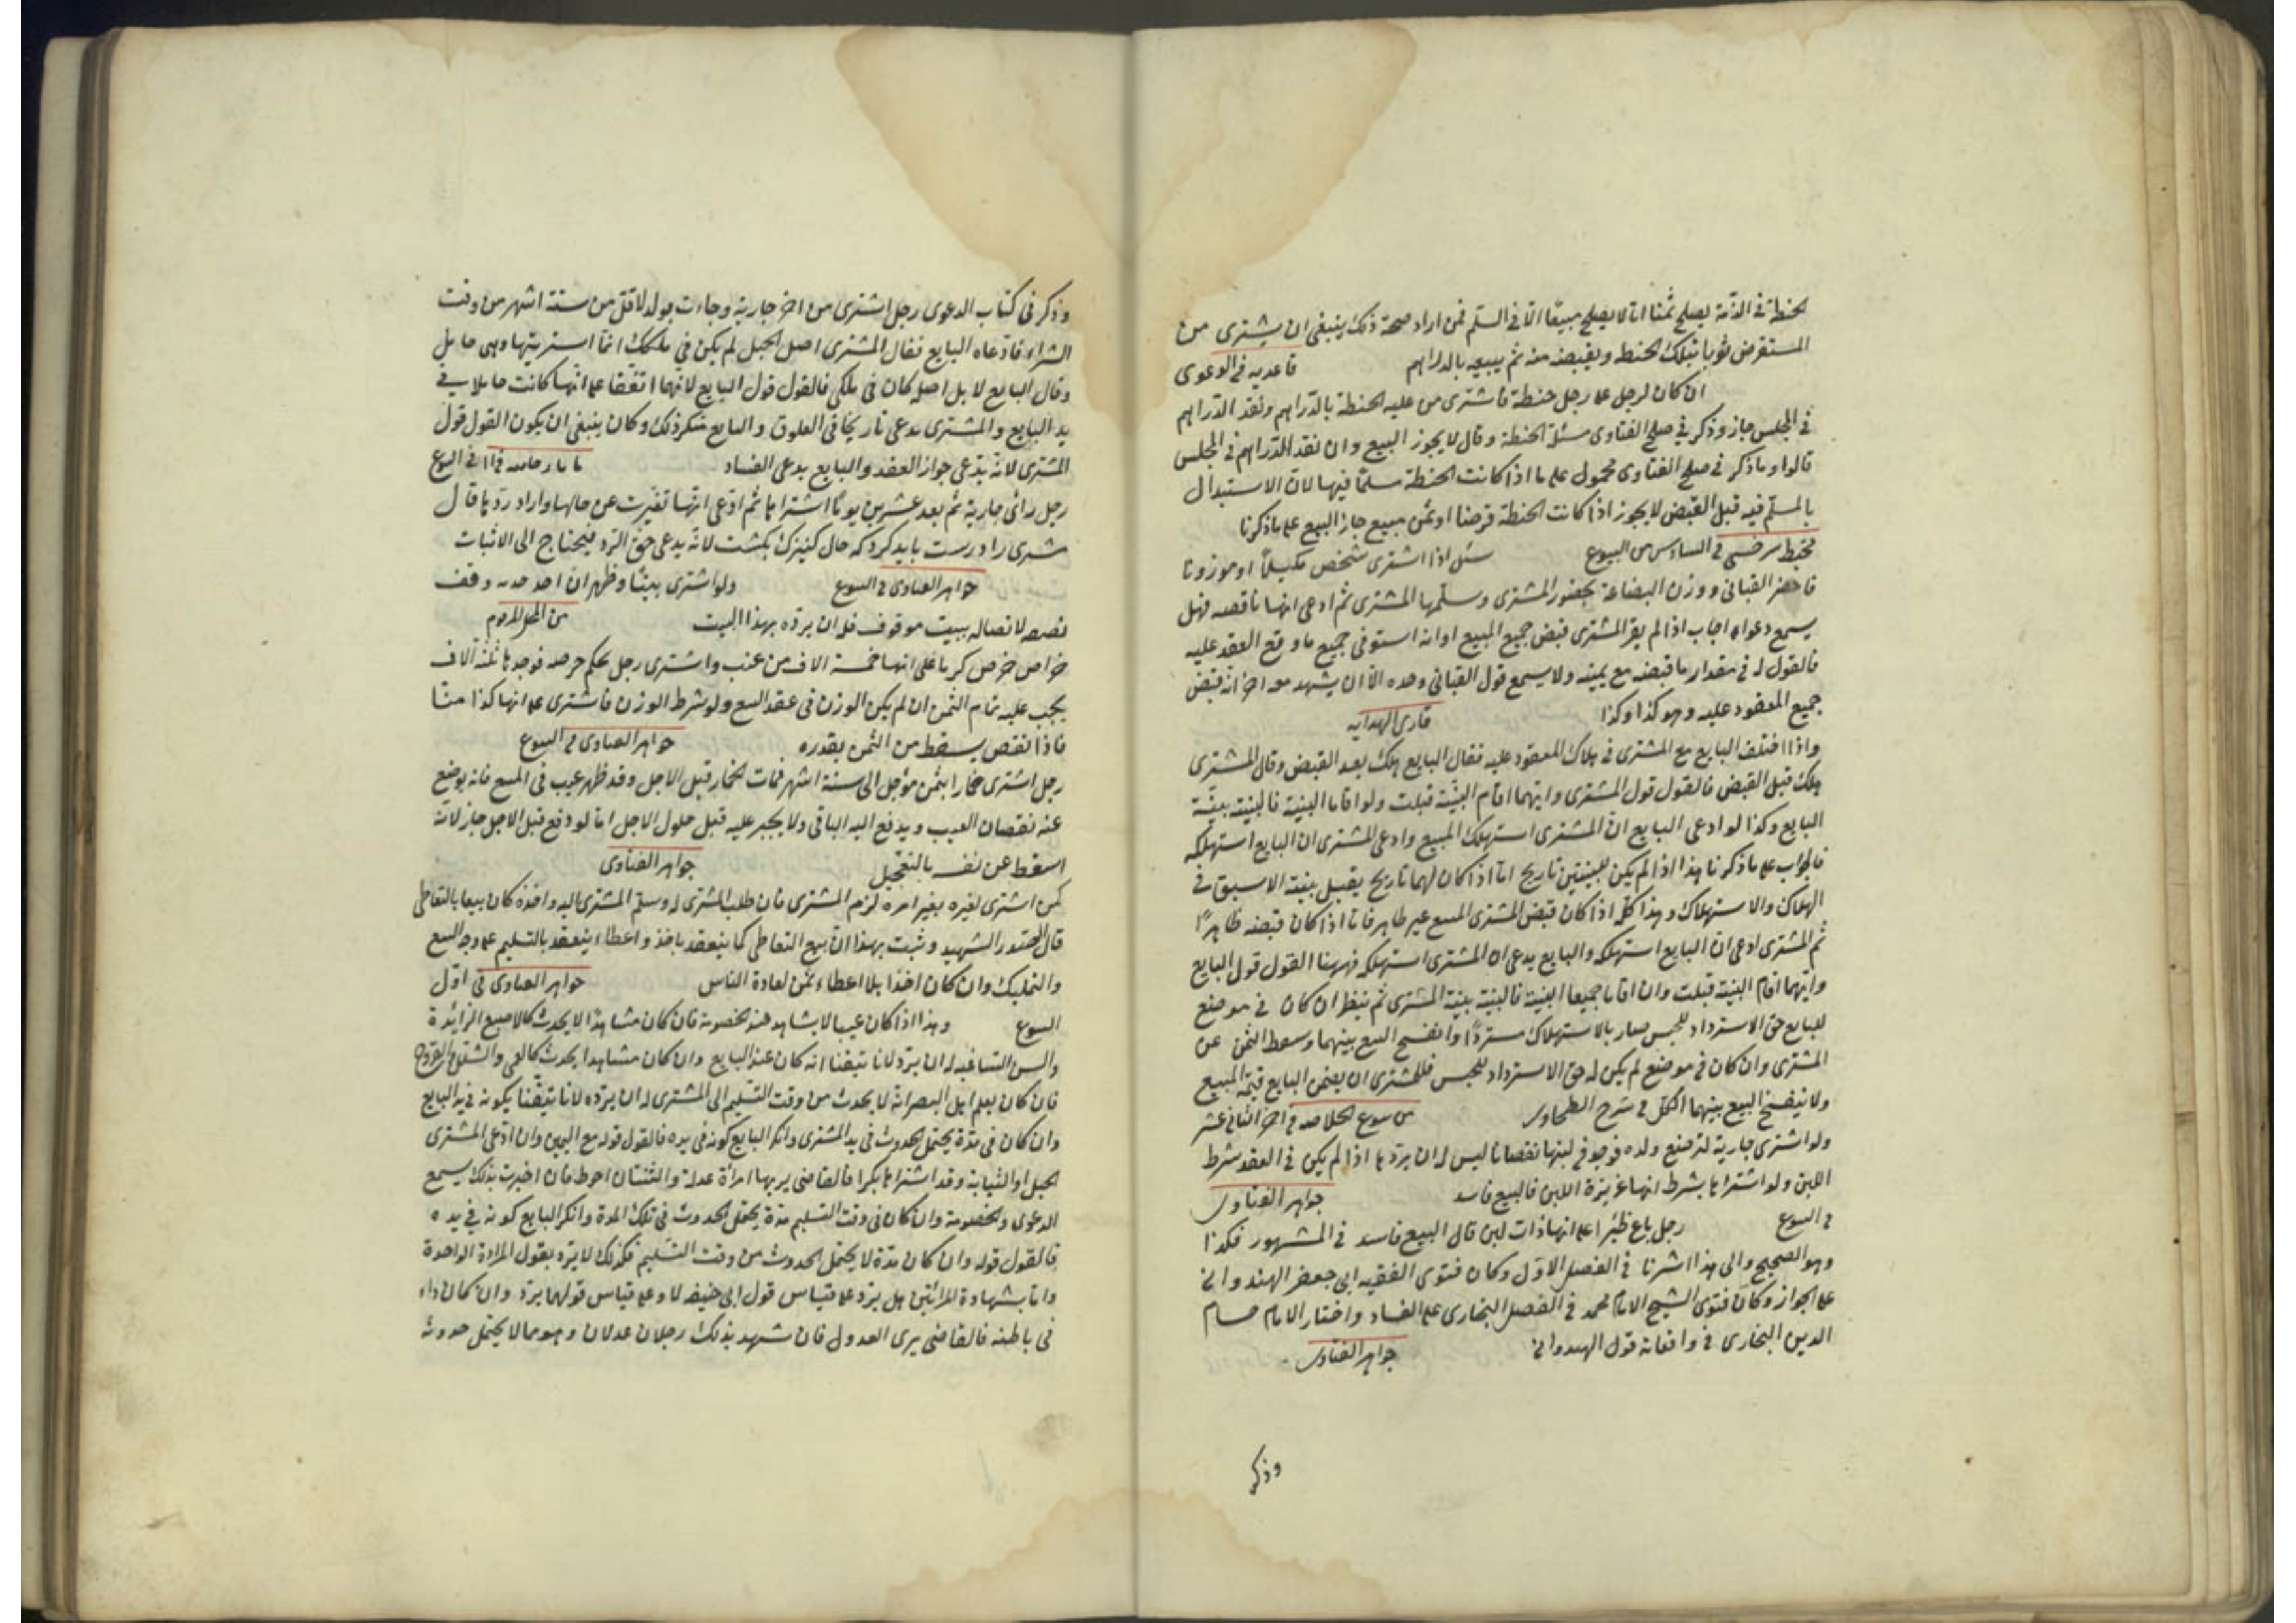 الحنطة في الذمة يصلح ثمنا اما لا يصلح مبيعا الا في السلم فمن اراد صحة ذلك ينبغي ان يشترى من
المستقرض ثوبا بتلك الحنطة ويقبضه منه ثم يبيعه بالدراهم قاعديه في الدعوى
ان كان لرجل على رجل حنطة فاشترى من عليه الحنطة بالدراهم ونقد الدراهم
في المجلس جاز وذكر في صلح الفتاوى مسئلة الحنطة وقال لا يجوز البيع وان نقد الدراهم في المجلس
قالوا وما ذكر في صلح الفتاوى محمول على ما اذا كانت الحنطة سلما فيها لان الاستبدال
بالمسلم فيه قبل القبض لا يجوز اذا كانت الحنطة قرضا او ثمن مبيع جاز البيع على ما ذكرنا
محيط سرخسي في السادس من البيوع سئل اذا اشترى شخص مكيلا او موزونا
فاحضر القباني ووزن البضاعة بحضور المشترى وسلمها المشترى ثم ادعى انها ناقصه فهل
يسمع دعواه اجاب اذا لم يقر المشترى قبض جميع المبيع او انه استوفى جميع ما وقع العقد عليه
فالقول له في مقدار ما قبضه مع يمينه ولا يسمع قول القباني وحده الا ان يشهد معه اخر انه قبض
جميع المعقود عليه وهو كذا وكذا قارى الهدايه
واذا اختلف البايع مع المشترى في هلاك المعقود عليه فقال البايع هلك بعد القبض وقال المشترى
هلك قبل القبض فالقول قول المشترى وايهما اقام البينة قبلت ولو اقاما البينة فالبينة بينة
البايع وكذا لو ادعى البايع ان المشترى استهلك المبيع وادعى المشترى ان البايع استهلكه
فالجواب على ما ذكرنا هذا اذا لم يكن للبينتين تاريخ اما اذا كان لهما تاريخ يقبل بينة الاسبق في
الهلاك والاستهلاك وهذا كله اذا كان قبض المشترى المبيع غير ظاهر فاما اذا كان قبضه ظاهرا
ثم المشترى ادعى ان البايع استهلكه والبايع يدعى ان المشترى استهلكه فههنا القول قول البايع
وايهما اقام البينة قبلت وان اقاما جميعا البينة فالبينة بينة المشترى ثم ينظر ان كان في موضع
للبايع حق الاسترداد للحبس صار بالاستهلاك مستردا وانفسخ البيع بينهما وسقط الثمن عن
المشترى وان كان في موضع لم يكن له حق الاسترداد للحبس فللمشترى ان يضمن البايع قيمة المبيع
ولا ينفسخ البيع بينهما الكل في شرح الطحاوى من بيوع الخلاصه في اخر الثاني عشر
ولو اشترى جارية لترضع ولده فوجد في لبنها نقصانا ليس له ان يردها اذا لم يكن في العقد شرط
اللبن ولو اشتراها بشرط انها غزيرة اللبن فالبيع فاسد جواهر الفتاوى
في البيوع رجل باع ظئرا على انها ذات لبن قال البيع فاسد في المشهور فكذا
وهو الصحيح والى هذا اشرنا في الفصل الاول وكان فتوى الفقيه ابى جعفر الهندوانى
على الجواز وكان فتوى الشيخ الامام محمد في الفضل البخارى على الفساد واختار الامام حسام
الدين البخارى في واقعاته قول الهندوانى جواهر الفتاوى
وذكر
وذكر في كتاب الدعوى رجل اشترى من اخر جارية وجاءت بولد لاقل من ستة اشهر من وقت
الشراء فادعاه البايع فقال المشترى اصل الحبل لم يكن في ملكك انما اشتريتها وهي حامل
وقال البايع لا بل اصله كان في ملكى فالقول قول البايع لانهما اتفقا على انها كانت حاملا في
يد البايع والمشترى يدعى تاريخا في العلوق والبايع منكر ذلك وكان ينبغى ان يكون القول قول
المشترى لانه يدعى جواز العقد والبايع يدعى الفساد في البيوع
رجل رائ جارية ثم بعد عشرين يوما اشتراها ثم ادعى انها تغيرت عن حالها واراد ردها قال
مشترى را درست بايد كرد كه حال كنيزك بكشت لانه يدعى حق الرد فيحتاج الى الاثبات
جواهر الفتاوى في البيوع ولو اشترى بيتا وظهر ان احد وقف
لاتصاله ببيت موقوف فله ان يرده بهذا البيت من المحل المرقوم
خراص خرص كرما على انها خمسة الاف من عنب واشترى رجل بحكم خرصه فوجدها ثلثة الاف
يجب عليه تمام الثمن ان لم يكن الوزن في عقد البيع ولو شرط الوزن فاشترى على انها كذا منا
فاذا نقص يسقط من الثمن بقدره جواهر الفتاوى في البيوع
رجل اشترى بثمن مؤجل الى ستة اشهر فمات قبل الاجل وقد ظهر عيب في المبيع فانه يوضع
عنه نقصان العيب ويدفع اليه الباقى ولا يجبر عليه قبل حلول الاجل اما لو دفع قبل الاجل جاز لانه
اسقط عن نفسه بالتعجيل جواهر الفتاوى
كمن اشترى لغيره بغير امره لزم المشترى فان طلب المشترى له وسلم المشترى اليه واخذه كان بيعا بالتعاطى
قال الصدر الشهيد وثبت بهذا ان بيع التعاطى كما ينعقد باخذ واعطاء ينعقد بالتسليم على وجه البيع
والتمليك وان كان اخذا بلا اعطاء ثمن لعادة الناس جواهر الفتاوى في اول
البيوع وهذا اذا كان عيبا لا يشاهد عند الخصومة فان كان مشاهدا لا يحدث كالاصبع الزائدة
والسن الشاغية له ان يرد لانا تيقنا انه كان عند البايع وان كان مشاهدا يحدث كالعمى والشلل والقروح
فان كان يعلم اهل البصر انه لا يحدث من وقت التسليم الى المشترى له ان يرده لانا تيقنا بكونه في يد البايع
وان كان في مدة يحتمل الحدوث في يد المشترى وانكر البايع كونه في يده فالقول قوله مع اليمين وان ادعى المشترى
الحبل او الثيابة وقد اشتراها بكرا فالقاضى يريها امراة عدلة والثنتان احوط فان اخبرت بذلك يسمع
الدعوى والخصومة وان كان في وقت التسليم مدة يحتمل الحدوث في تلك المدة وانكر البايع كونه في يده
فالقول قوله وان كان مدة لا يحتمل الحدوث من وقت التسليم فكذلك لا يرد بقول المراة الواحدة
واما بشهادة المرائتين هل يرد على قياس قول ابى حنيفه لا وعلى قياس قولهما يرد وان كان داء
في باطنه فالقاضى يرى العدول فان شهد بذلك رجلان عدلان وهو مما لا يحتمل حدوثه